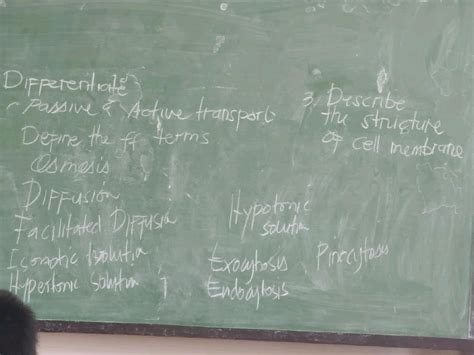 Differentiate
Passive & Active transport
Define the ff terms
Osmosis
Diffusion
Facilitated Diffusion
Isomotic solution
Hypertonic solution
3. Describe
the structure
of cell membrane
Hypotonic
solution
Exocytosis
Endocytosis
Pinocytosis